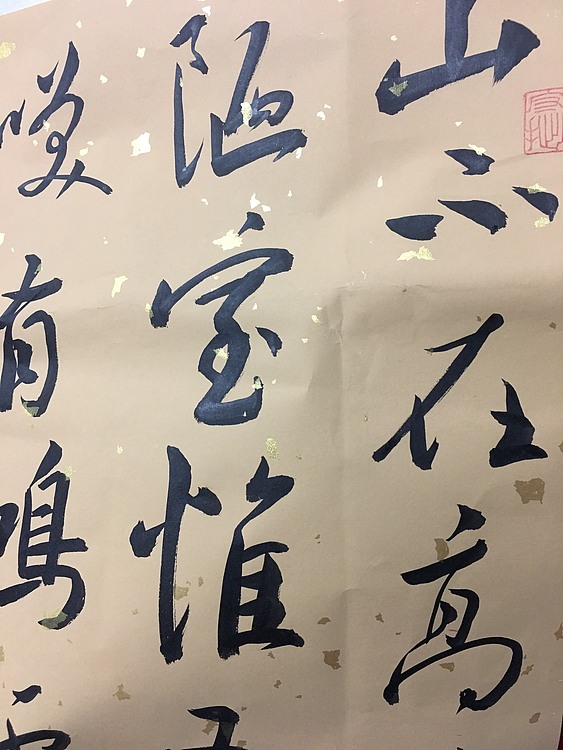 山不在高
陋室惟
咲有鴻